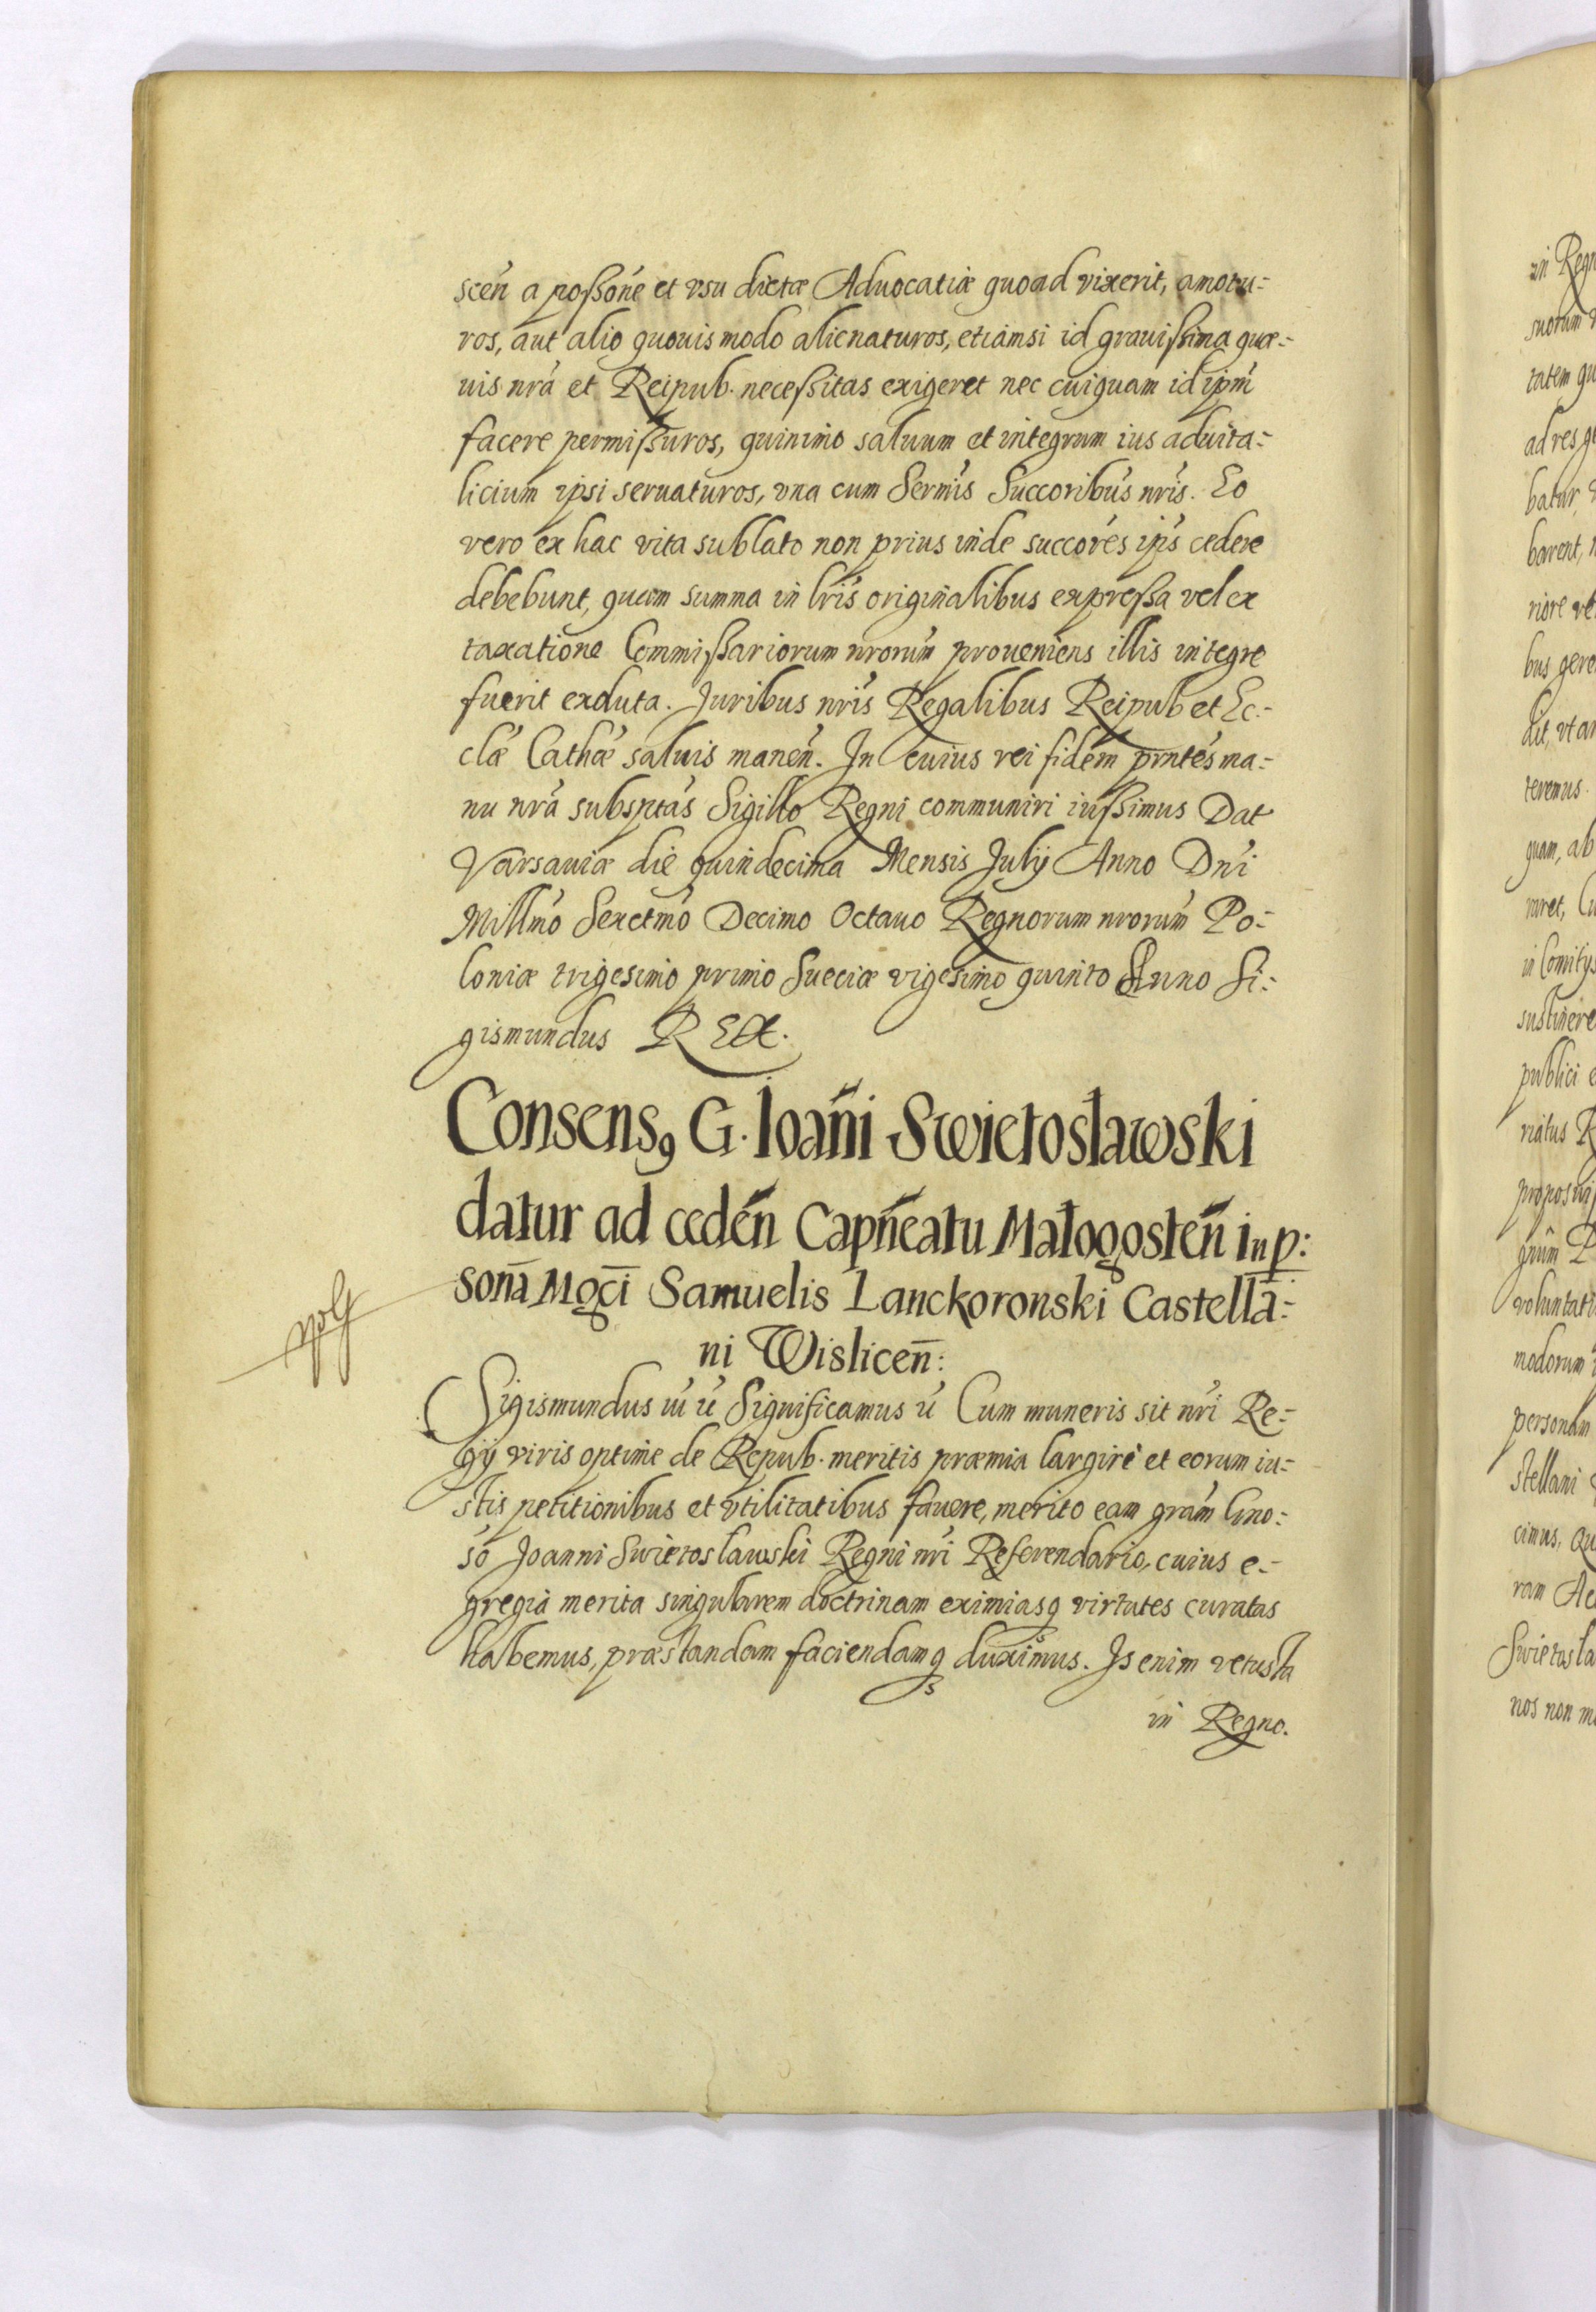 scen̄ a possóne et vsu dictæ Aduocatiæ quoad vixerit, amotu=
ros, aut alio quouis modo alienaturos, etiamsi id grauissima quæ=
uis nrá et Reipub. necessitas exigeret nec cuiquam id ipm̄
facere permissuros, quinimo saluum et integrum ius aduita=
licium ipsi seruaturos, vna cum Sermis Succoribus nris. Eo
vero ex hac vita sublato non prius inde succores ips cedere
debebunt, quam summa in lris originalibus expressa vel ex
taxatione Commissariorum nrorum proueniens illis integre
fuerit exoluta. Juribus nris Regalibus Reipub et Ec=
clæ Cathæ saluis manen̄. In cuius rei fidem prntes ma=
nu nrá subsptas Sigillo Regni communiri iussimus Dat
Varsauiæ die quindecima Mensis Julij Anno Dni
Millmo Sexctmo Decimo Octauo Regnorum nrorum Po=
loniæ trigesimo primo Sueciæ vigesimo quinto Anno Si=
gismundus REX.
Consens9 G. Ioan̄i Swietosławski
datur ad ceden̄ Capn̄eatu Małogosten̄ in p:
sonā Mgci Samuelis Lanckoronski Castellā=
ni Wislicen̄:
Sigismundus ıú ú Significamus ú Cum muneris sit nri Re=
gij viris optime de Repub. meritis præmia largiri et eorum iu=
stis petitionibus et vtilitatibus fauere, merito eam grām Gno=
so Joanni Swietoslawski Regni nri Referendario, cuius e=
gregia merita singularem doctrinam eximiasq virtutes curatas
habemus, præstandam faciendamq duximus. Is enim vetusta
in Regno.